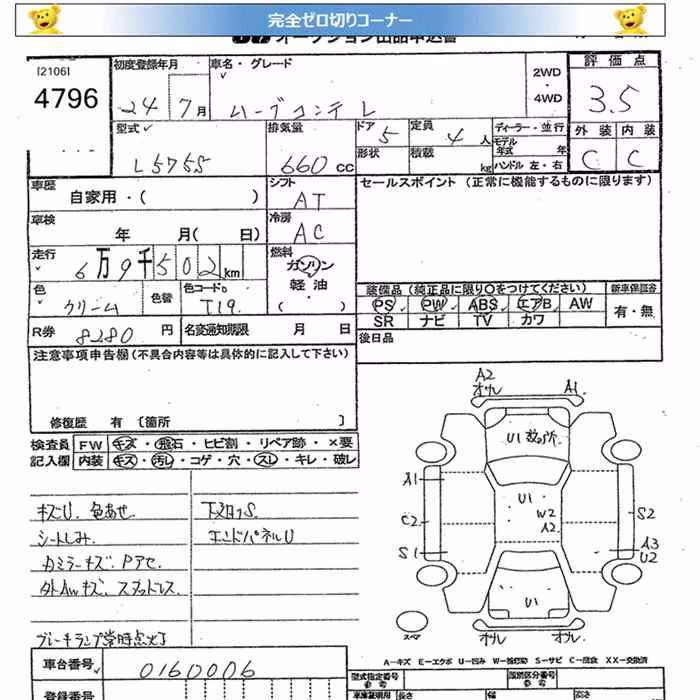 完全ゼロ切りコーナー
オークション出品申込書
[2106]
4796
初度登録年月
24年7月
車名・グレード
ムーブコンテ L
2WD
・
4WD
評価点
3.5
型式
L575S
排気量
660cc
ドア 5
形状
定員 4人
積載 kg
ディーラー・並行
モデル年式 年
ハンドル 左・右
外装 内装
C C
車歴
自家用・( )
シフト
AT
セールスポイント (正常に機能するものに限ります)
車検
年 月( 日)
冷房
AC
走行
6万9千502km
燃料
ガソリン
軽油
( )
色
クリーム
色替
色コードNo
T19
装備品 (純正品に限り○をつけてください)
PS PW ABS エアB AW
SR ナビ TV カワ
新車保証書
有・無
R券 8280円
名変通知期限 月 日
後日品
注意事項申告欄(不具合内容等は具体的に記入して下さい)
修復歴 有 [箇所 ]
検査員記入欄
FW キズ・飛石・ヒビ割・リペア跡・×要
内装 キズ・汚れ・コゲ・穴・スレ・キレ・破レ
キズU、色あせ
シートしみ
カミラーキズ、Pアセ
外AWキズ、スタッドレス
ブレーキランプ常時点灯
下回りS
エンドパネルU
A2
オサレ
A1
U1 数ヶ所
A1
U1
W2
A2
C2
S2
S1
A3
U2
U1
スペア
オサレ
オサレ
A-キズ E-エクボ U-凹み W-補修跡 S-サビ C-腐食 XX-交換済
車台番号
0160006
登録番号
型式指定番号
参考
類別区分番号
参考
車庫証明用
長さ
幅
高さ